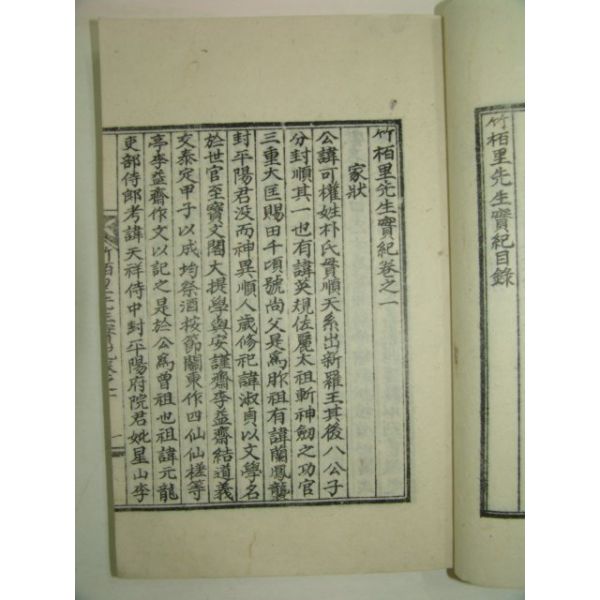 竹栢里先生實紀目錄
竹栢里先生實紀卷之一
家狀
公諱可權姓朴氏貫順天系出新羅王其後八公子
分封順其一也有諱英規佐麗太祖斬神劒之功官
三重大匡賜田千頃號尚父是爲胙祖有諱蘭鳳襲
封平陽君没而神異順人歲修祀諱淑貞以文學名
於世官至寶文閣大提學與安謹齋李益齋結道義
交泰定甲子以成均祭酒按節關東作四仙仙槎等
亭李益齋作文以記之是於公爲曾祖也祖諱元龍
吏部侍郎考諱天祥侍中封平陽府院君妣星山李